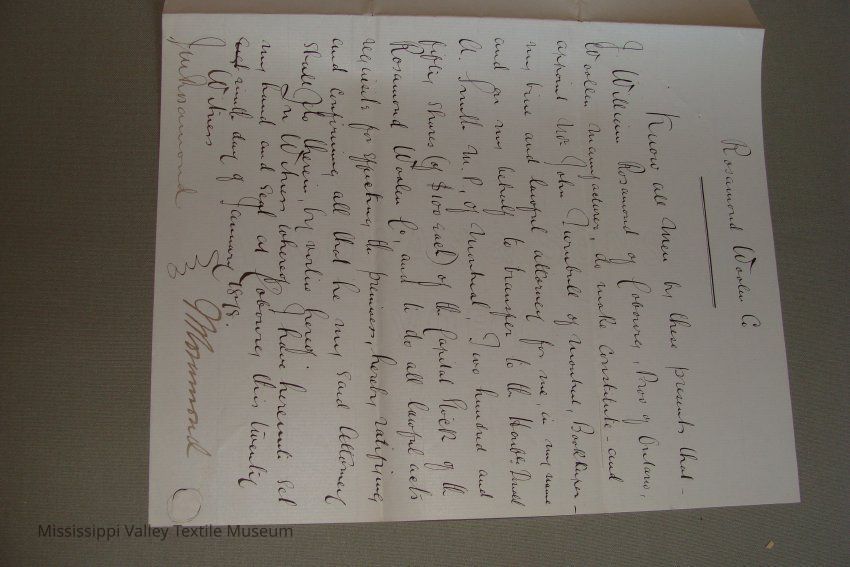 Rosamond Woolen Co
Know all men by these presents that -
I William Rosamond of Cobourg, Prov of Ontario,
Woolen Manufacturer, do make constitute - and
appoint Mr John Turnbull of Montreal, Bookkeeper -
my true and lawful attorney for me in my name
and on my behalf to transfer to the Honble Donald
A. Smith M.P. of Montreal, Two hundred and
fifty shares (of $100 each) of the Capital Stock of the
Rosamond Woolen Co, and to do all lawful acts
requisite for effecting the premises, hereby ratifying
and confirming all that he my said Attorney
shall do therein, by virtue hereof.
In Witness whereof I have hereunto set
my hand and seal at Cobourg this twenty
ninth day of January 1878.
Witness
Rosamond
Mississippi Valley Textile Museum